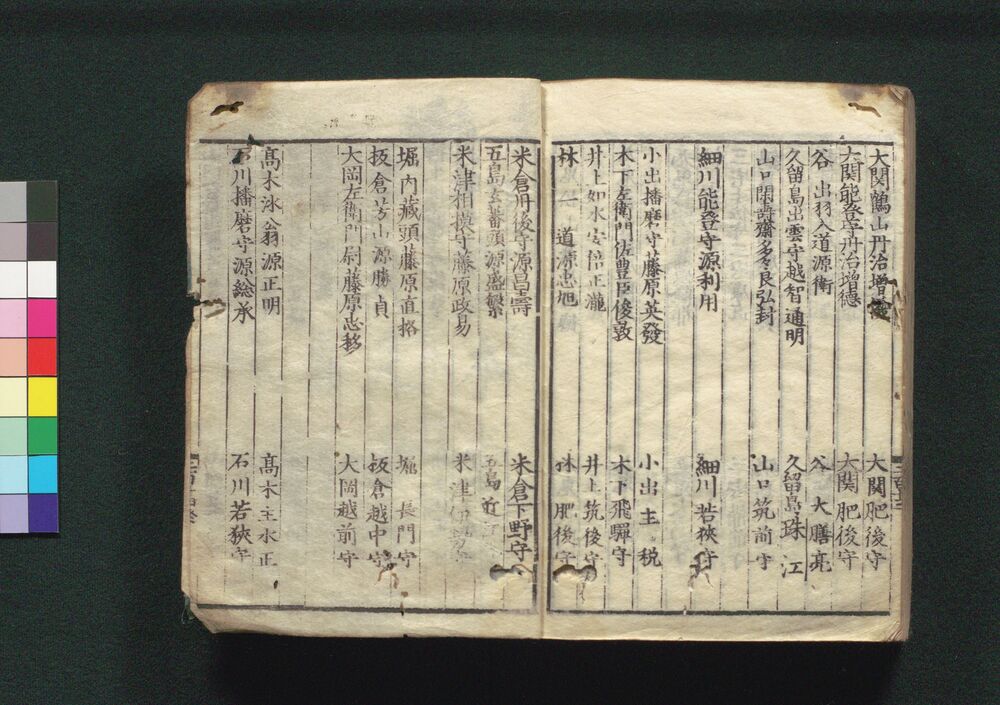 大関鶴山丹治増 大関肥後守
大関能登守丹治増徳 大関肥後守
谷出羽入道源衛 谷大膳亮
久留島出雲守越智通明 久留島珠江
山口閑 齋多〻良弘封 山口筑前守
細川能登守源利用 細川若狭守
小出播磨守藤原英發 小出主税
木下左衛門佐豊臣俊敦 木下飛騨守
井上如水安倍正瀧 井上筑後守
林一道源忠旭 林肥後守
米倉丹後守源昌壽 米倉下野守
五島玄蕃頭源盛繁 五島近
米津相模守藤原政易 米津伊勢守
堀内蔵頭藤原直格 堀長門守
板倉芳山源勝貞 板倉越中守
大岡左衛門尉藤原忠移 大岡越前守
髙木泳翁源正明 髙木主水正
石川播磨守源総承 石川若狭守